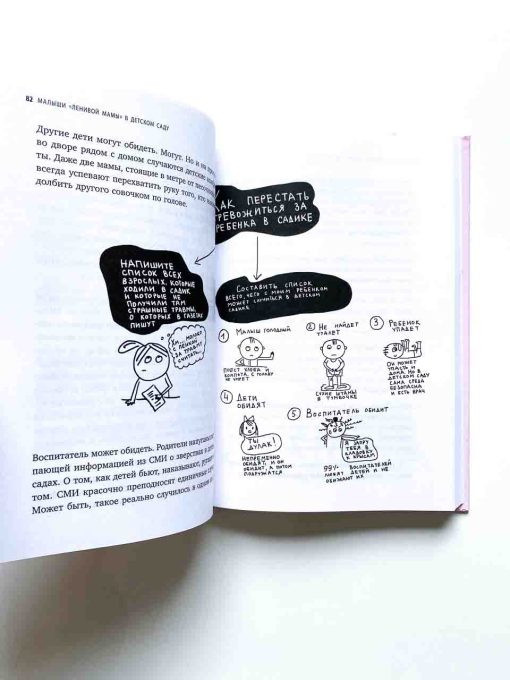 82 МАЛЫШИ «ЛЕНИВОЙ МАМЫ» В ДЕТСКОМ САДУ
Другие дети могут обидеть. Могут. Но и на
во дворе рядом с домом случаются детские
ты. Даже две мамы, стоящие в метре от
всегда успевают перехватить руку того, кто
долбить другого совочком по голове.
КАК ПЕРЕСТАТЬ
ТРЕВОЖИТЬСЯ ЗА
РЕБЕНКА В САДИКЕ
НАПИШИТЕ
СПИСОК ВСЕХ
ВЗРОСЛЫХ, КОТОРЫЕ
ХОДИЛИ В САДИК
И КОТОРЫЕ НЕ
ПОЛУЧИЛИ ТАМ
СТРАШНЫЕ ТРАВМЫ,
О КОТОРЫХ В ГАЗЕТАХ
ПИШУТ
ХМ, МОЖНО
ЗА ТРАВМУ
СЧИТАТЬ...
СОСТАВИТЬ СПИСОК
ВСЕГО, ЧЕГО С МОИМ РЕБЕНКОМ
МОЖЕТ СЛУЧИТЬСЯ В ДЕТСКОМ
САДИКЕ
1 МАЛЫШ ГОЛОДНЫЙ
ПОЕСТ ХЛЕБА И
КОМПОТА, С ГОЛОДУ
НЕ УМРЕТ
2 НЕ НАЙДЕТ
ТУАЛЕТ
СУХИЕ ШТАНЫ В
ТУМБОЧКЕ
3 РЕБЕНОК
УПАДЕТ
ОН МОЖЕТ
УПАСТЬ И
ДОМА. НО В
ДЕТСКОМ САДУ
САМА СРЕДА
БЕЗОПАСНА
И ЕСТЬ ВРАЧ
4 ДЕТИ
ОБИДЯТ
ТЫ
ДУЛАК!
НЕПРЕМЕННО
ОБИДЯТ, И ОН
ОБИДИТ, А ПОТОМ
ПОДРУЖАТСЯ
5 ВОСПИТАТЕЛЬ ОБИДИТ
Я ЗАПРУ
ТЕБЯ В
КЛАДОВКУ
К КРЫСАМ!
99% ВОСПИТАТЕЛЕЙ
ЛЮБЯТ ДЕТЕЙ И НЕ
ОБИЖАЮТ ИХ
Воспитатель может обидеть. Родители напуганы
пающей информацией из СМИ о зверствах в
садах. О том, как детей бьют, наказывают,
том. СМИ красочно преподносят единичные
Может быть, такое реально случилось в одном